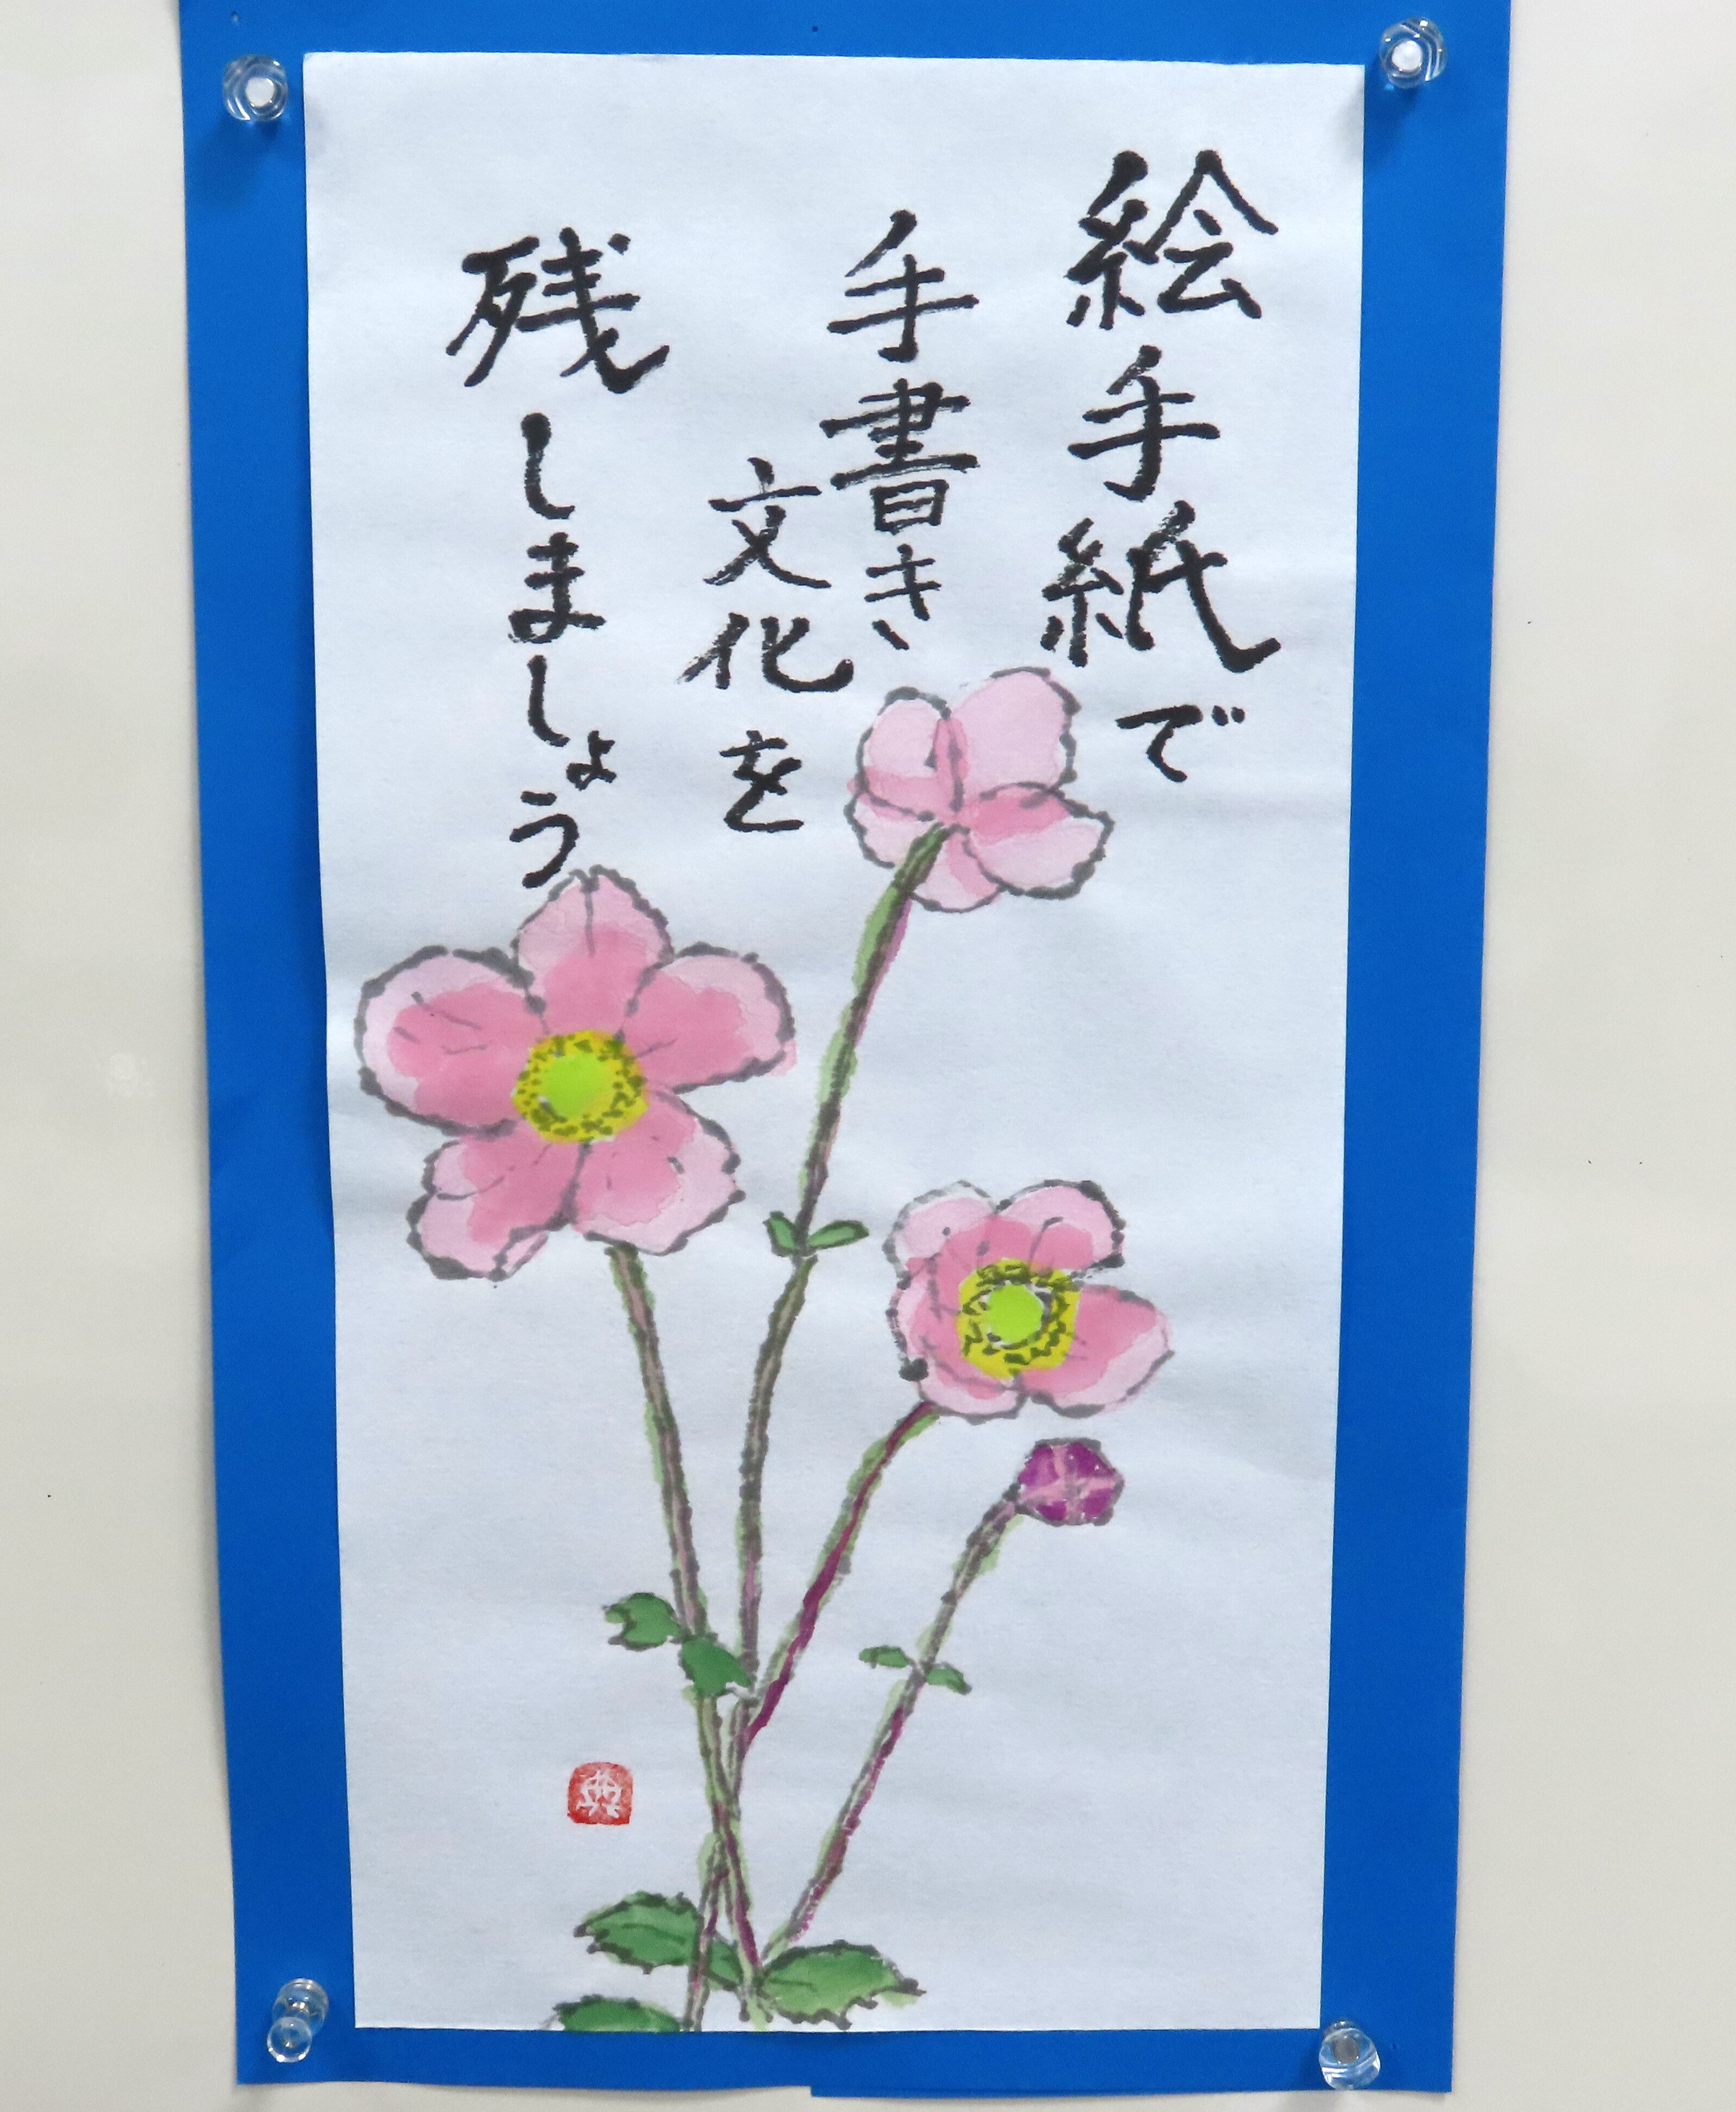 絵手紙で
手書き
文化を
残しましょう